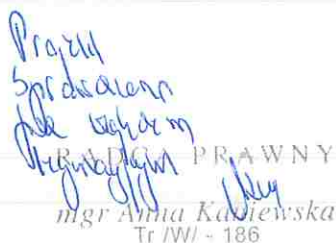 Projekt
sprawdzono
pod względem
RADCA PRAWNY
mgr Anna Kaniewska
Tr /W/ - 186